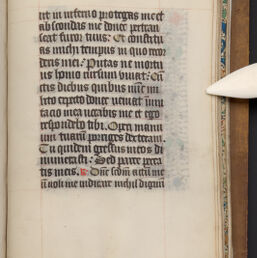 ut in inferno protegas me et
abscondas me donec pertran
seat furor tuus: Et constitu
as michi tempus in quo recor
deris mei: Putas ne mortu
us homo rursum vivat: Cun
ctis diebus quibus nunc mi
lito expecto donec veniat immu
tatio mea vocabis me et ego
respondebo tibi. Operi manu
um tuarum porriges dexteram.
Tu quidem gressus meos di
numerasti: Sed parce pecca
tis meis. Dne secundum actum meum
noli me iudicare nichil dignum